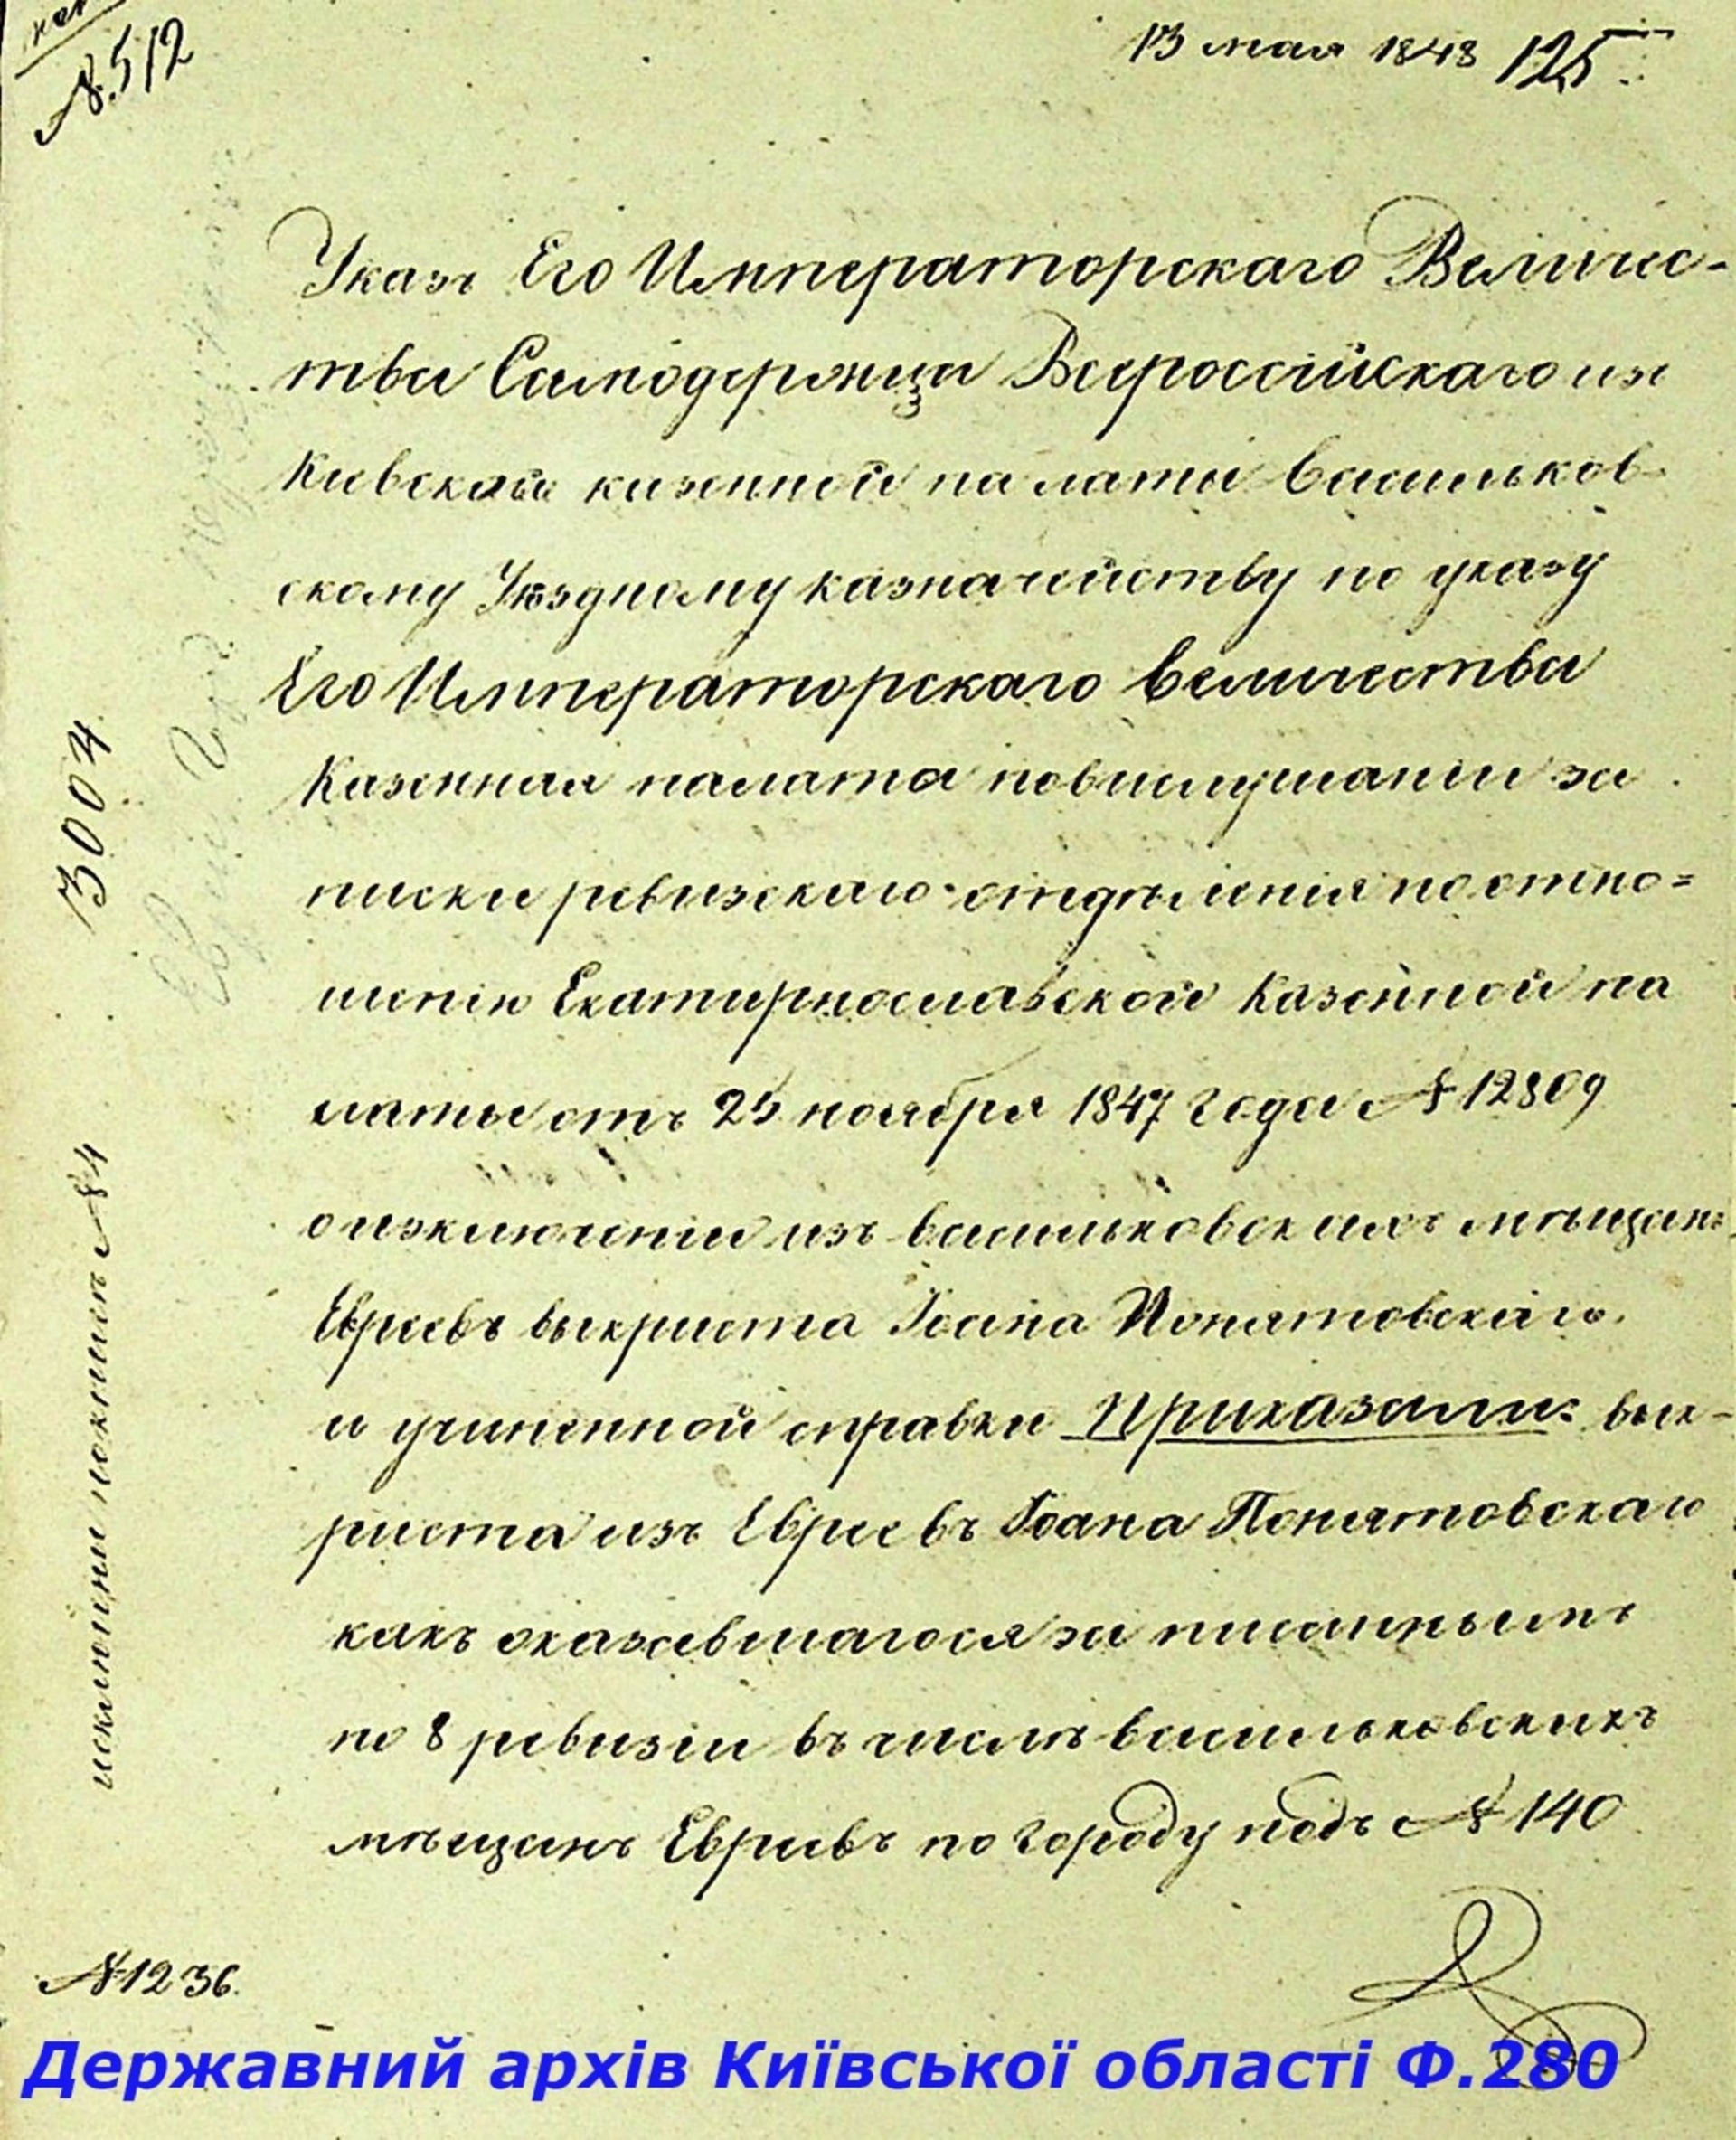 № 512
13 мая 1848 125
Указъ Его Императорскаго Величес-
тва Самодержца Всероссійскаго изъ
Киевской казенной палаты Васильков-
скому Уѣздному казначейству по указу
Его Императорскаго Величества
Казенная палата по выслушании за
писки ревизскаго отдѣленія по отно=
шенію Екатеринославской Казенной па
латы отъ 25 ноября 1847 года № 12809
о изключении изъ васильковскихъ мѣщанъ
Евреевъ выкриста Іоана Понятовскаго
и учиненной справки Приказали: вык-
риста изъ Евреевъ Іоана Понятовскаго
какъ оказавшагося записаннымъ
по 8 ревизіи въ числѣ васильковскихъ
мѣщанъ Евреевъ по городу подъ № 140
3004
№ 4
№ 1236.
Державний архів Київської області Ф.280